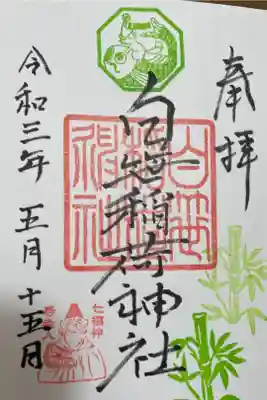 奉拝
白笹稲荷神社
令和三年 五月 十五日
白笹
稲荷
神社
七福神